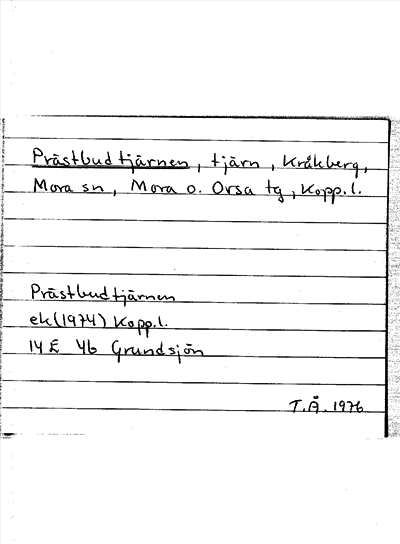 Prästbudtjärnen, tjärn, Kråkberg,
Mora sn, Mora o. Orsa tg, Kopp.l.
Prästbudtjärnen
ek(1974) Kopp.l.
14 E 4b Grundsjön
T.Å. 1976